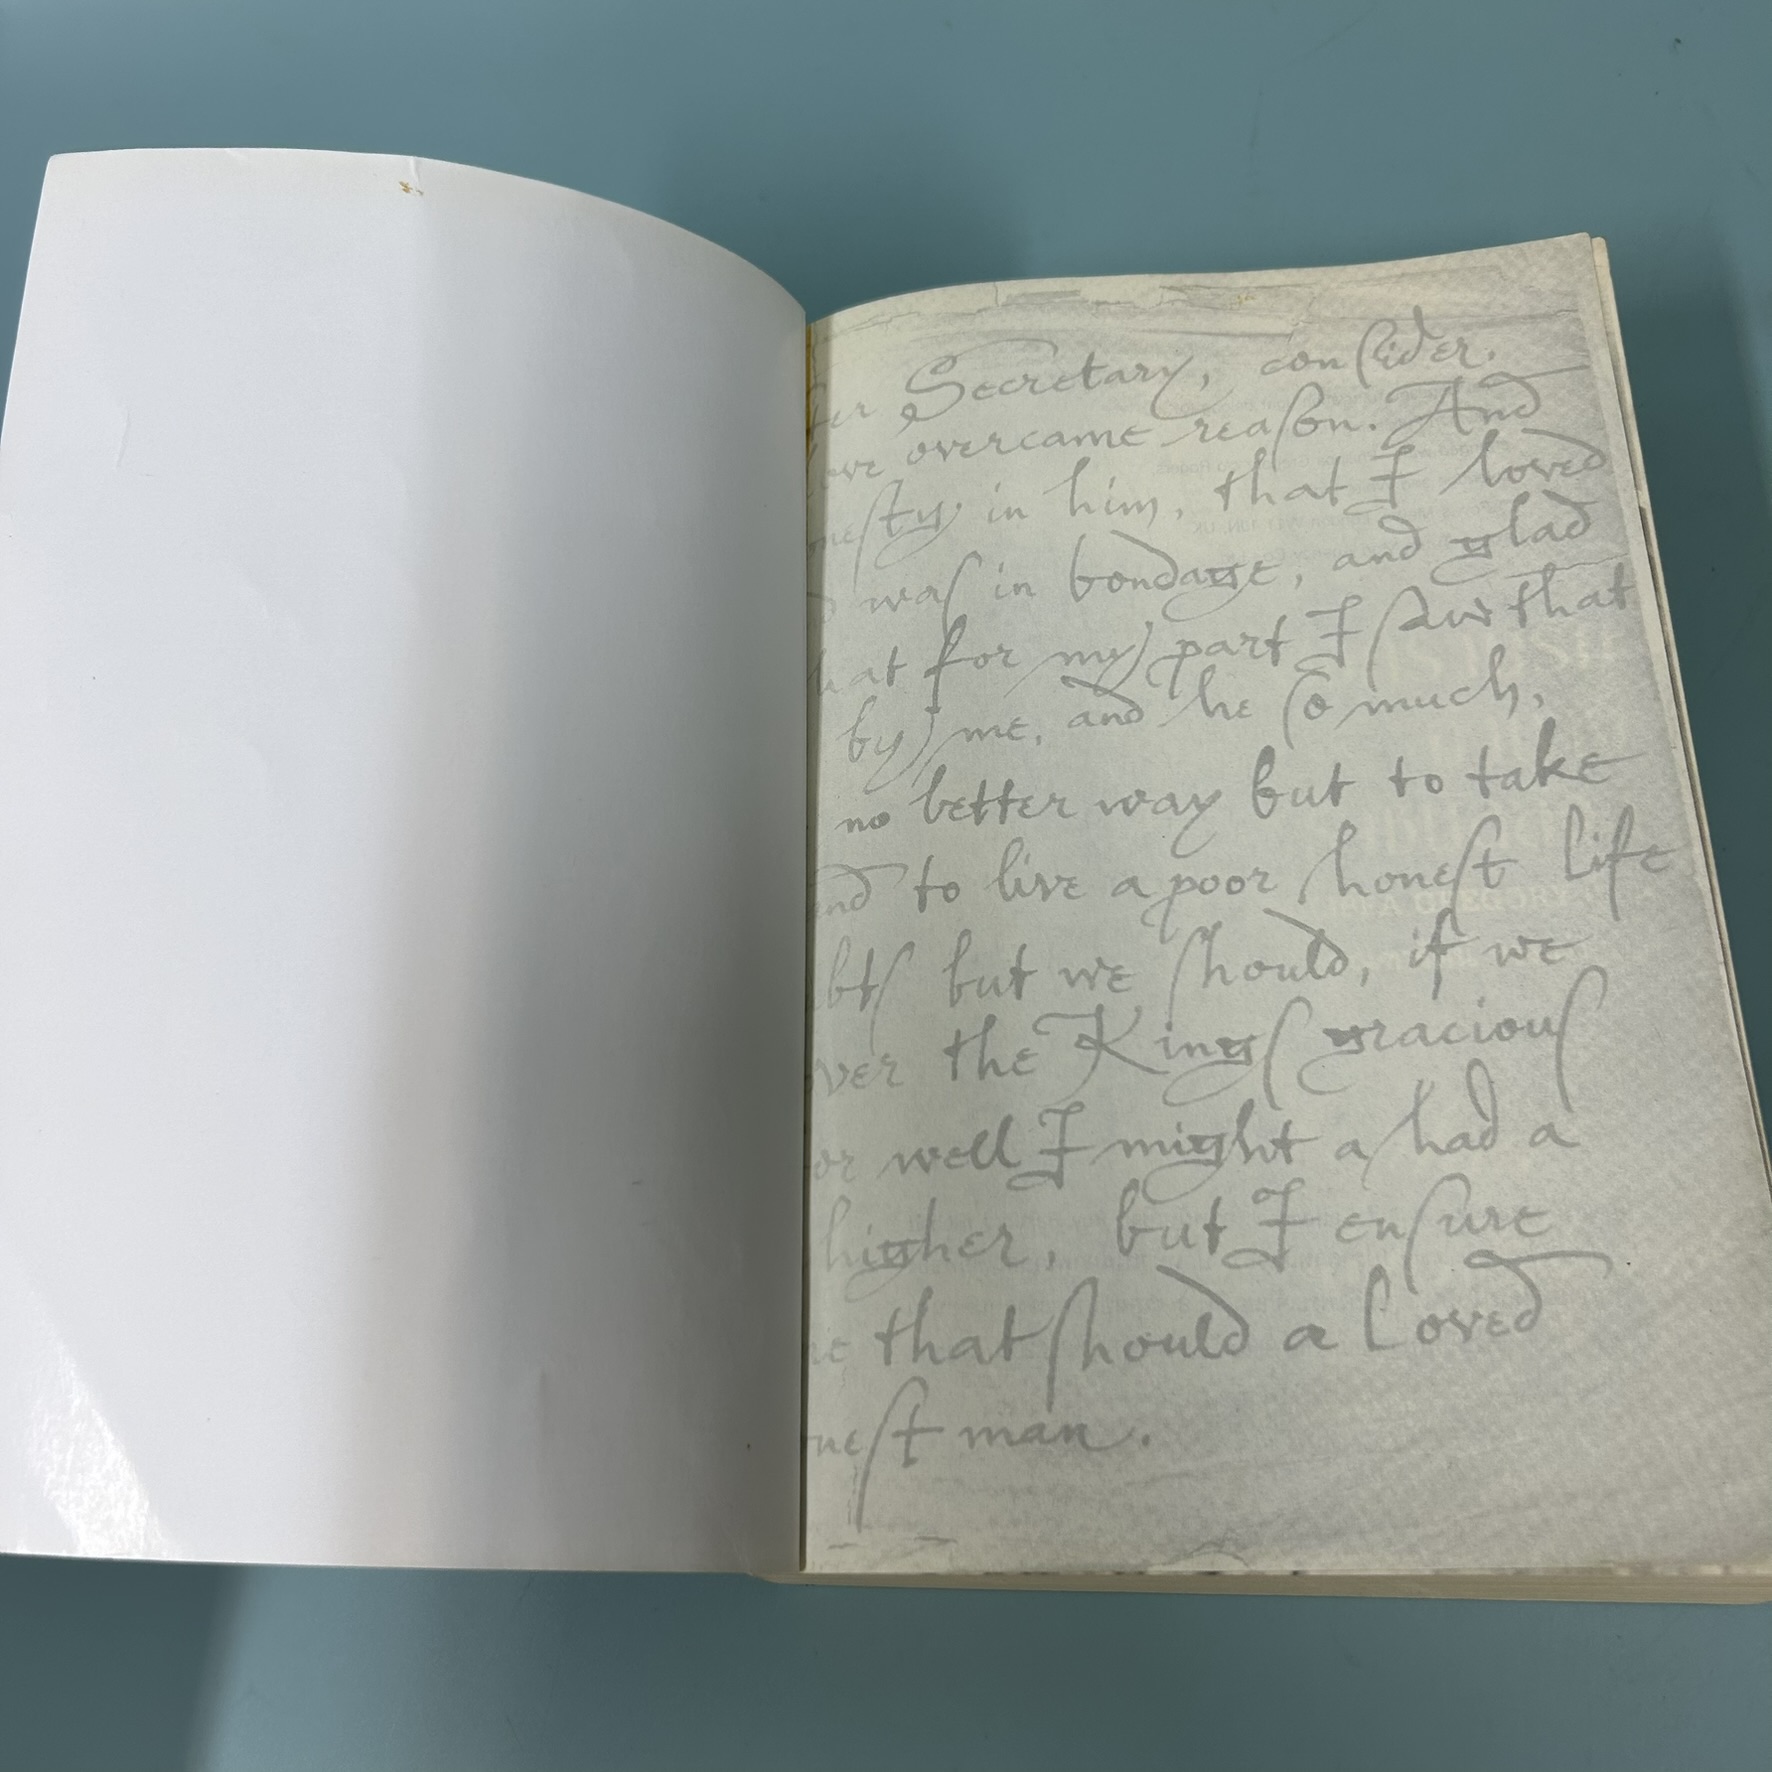 Secretary, consider.
overcame reason. And
in him, that I loved
was in bondage, and glad
for my part I saw that
by me, and he so much,
no better way but to take
to live a poor honest life
but we should, if we
the Kings gracious
well I might a had a
higher, but I ensure
that should a loved
man.